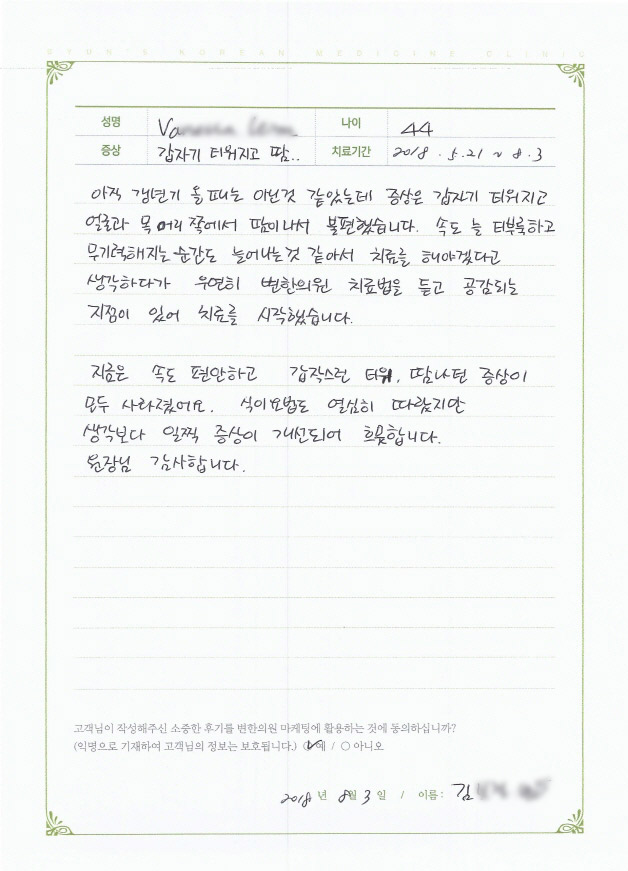 BYUN'S KOREAN MEDICINE CLINIC
성명 나이 44
증상 갑자기 더워지고 땀.. 치료기간 2018. 5. 21 ~ 8. 3
아직 갱년기 올 때는 아닌것 같았는데 증상은 갑자기 더워지고
얼굴과 목 머리 쪽에서 땀이나서 불편했습니다. 속도 늘 더부룩하고
무기력해지는 순간도 늘어나는것 같아서 치료를 해야겠다고
생각하다가 우연히 변한의원 치료법을 듣고 공감되는
지점이 있어 치료를 시작했습니다.
지금은 속도 편안하고 갑작스런 더위, 땀나던 증상이
모두 사라졌어요. 식이요법도 열심히 따랐지만
생각보다 일찍 증상이 개선되어 흐뭇합니다.
원장님 감사합니다.
고객님이 작성해주신 소중한 후기를 변한의원 마케팅에 활용하는 것에 동의하십니까?
(익명으로 기재하여 고객님의 정보는 보호됩니다.) ○ 예 / ○ 아니오
2018 년 8월 3 일 / 이름 : 김